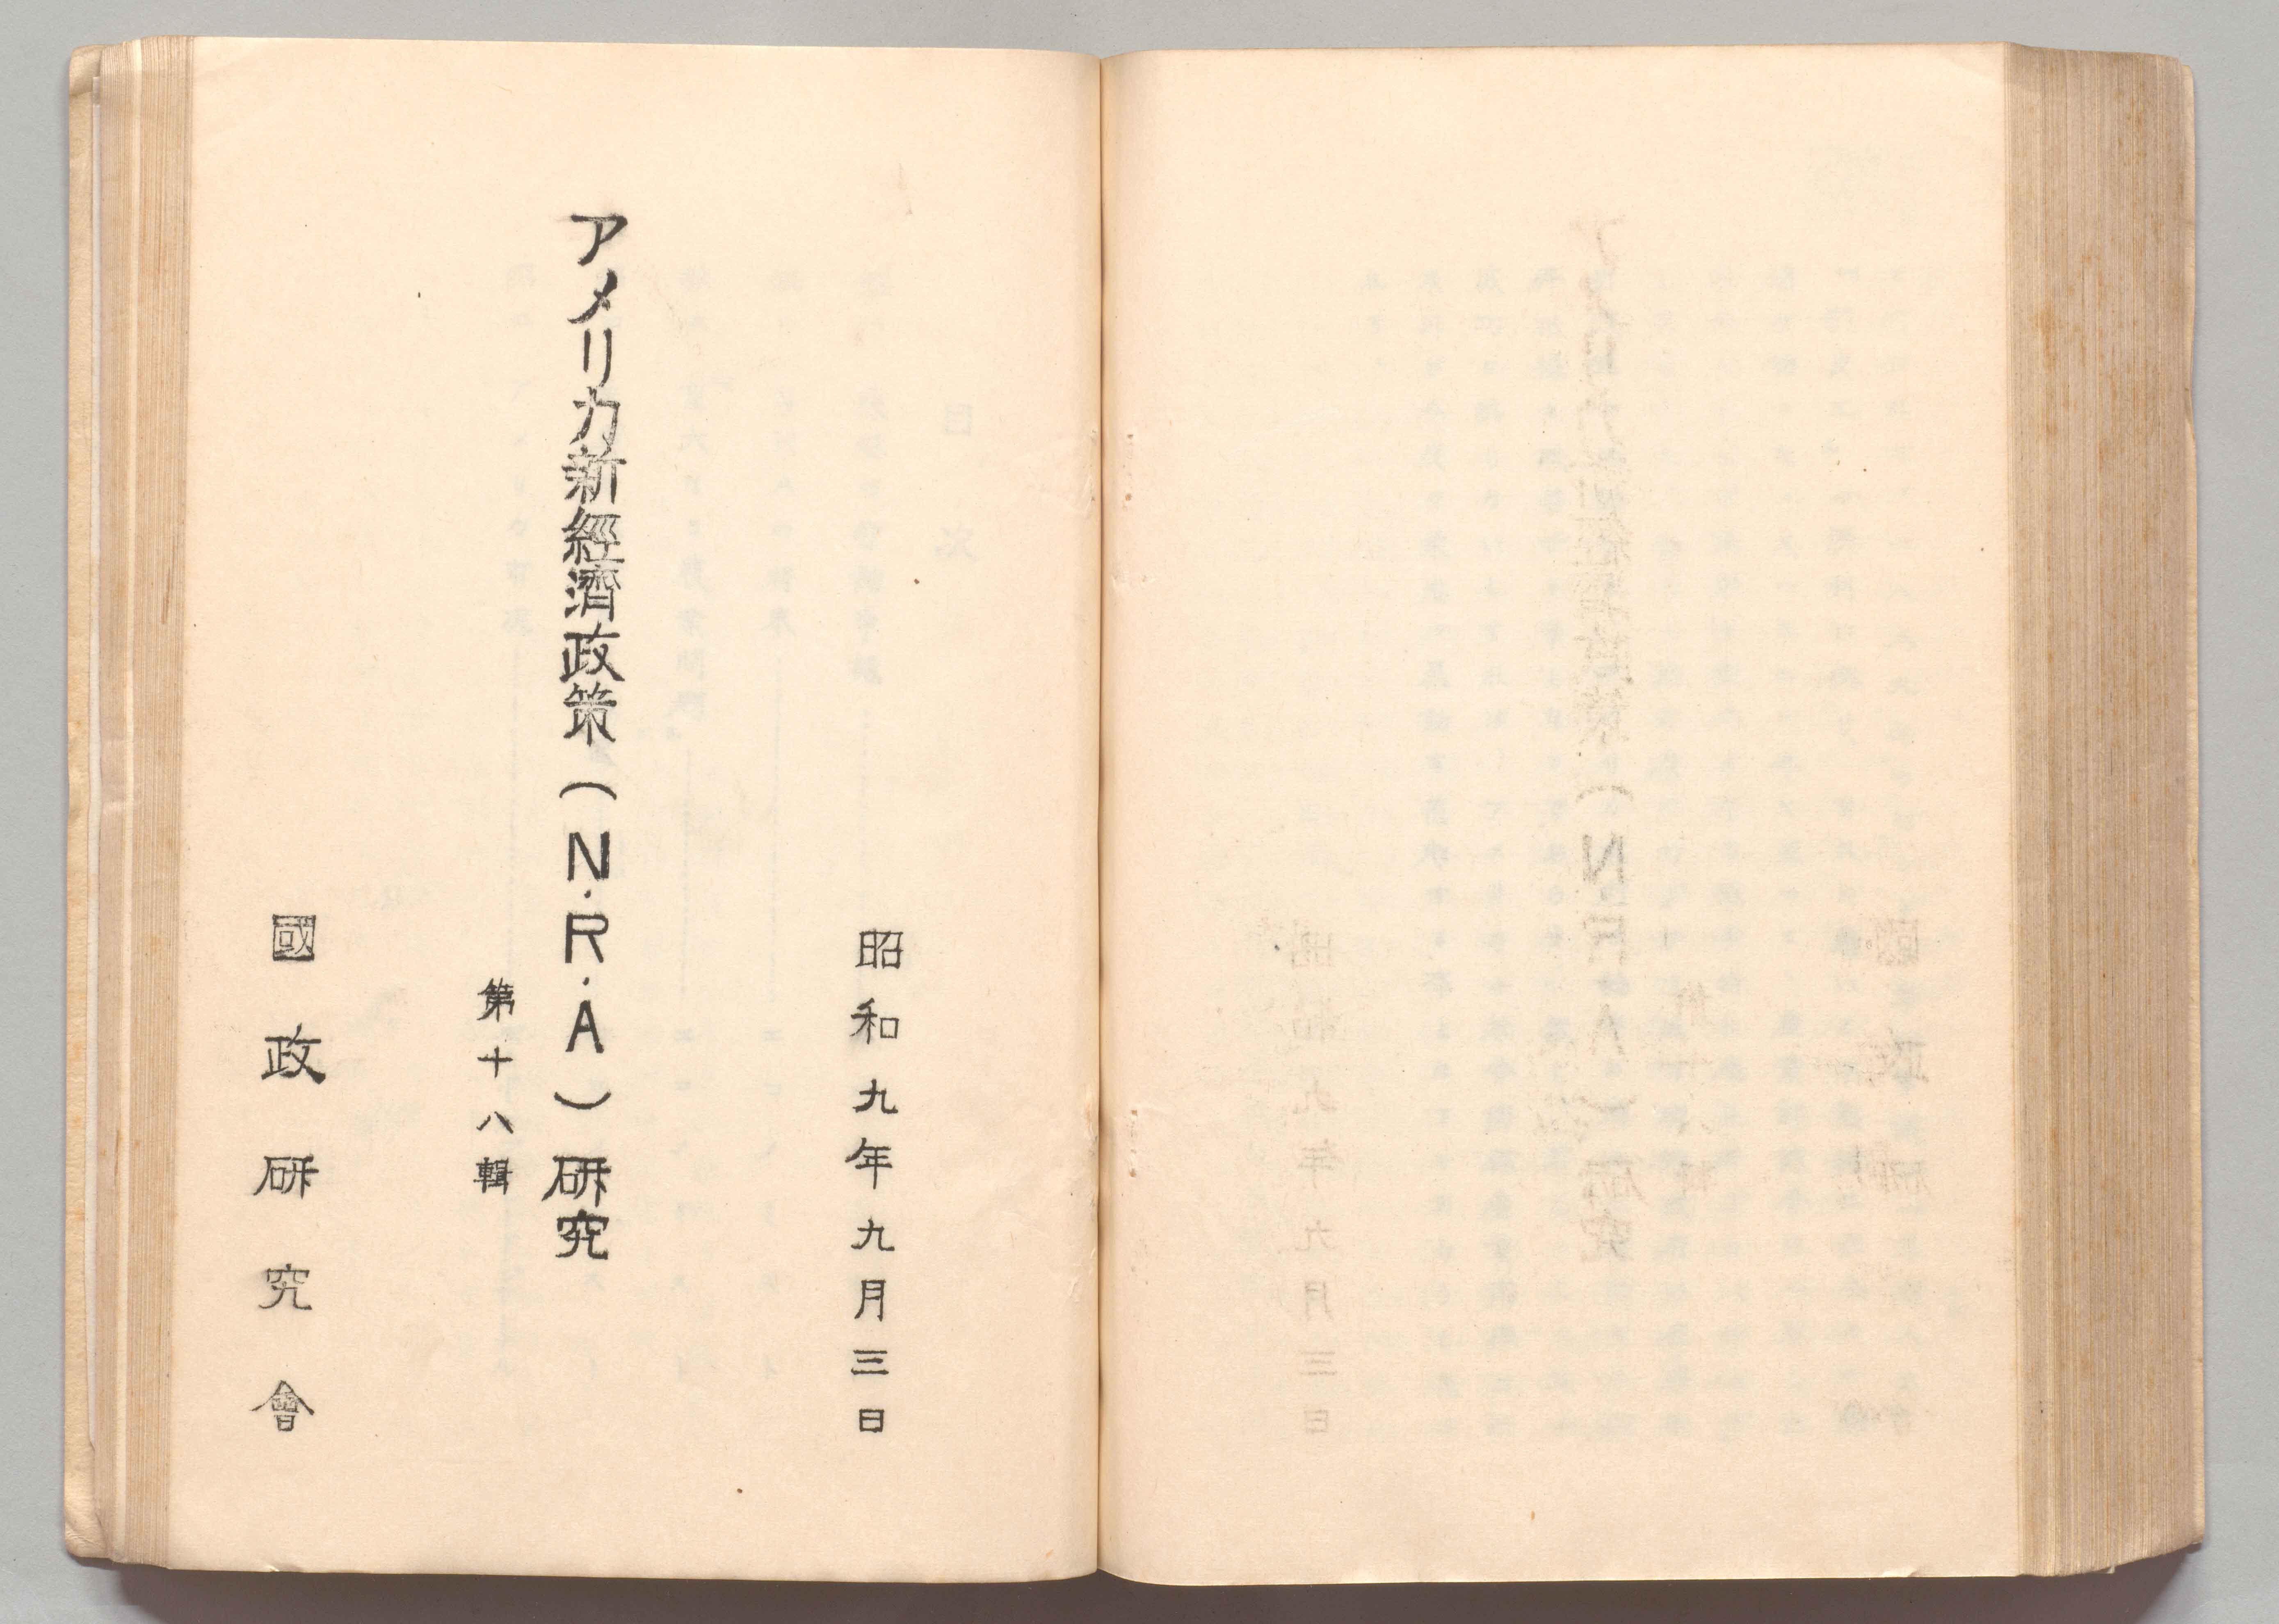 昭和九年九月三日
アメリカ新經濟政策(N.R.A)研究
第十八輯
國政研究會